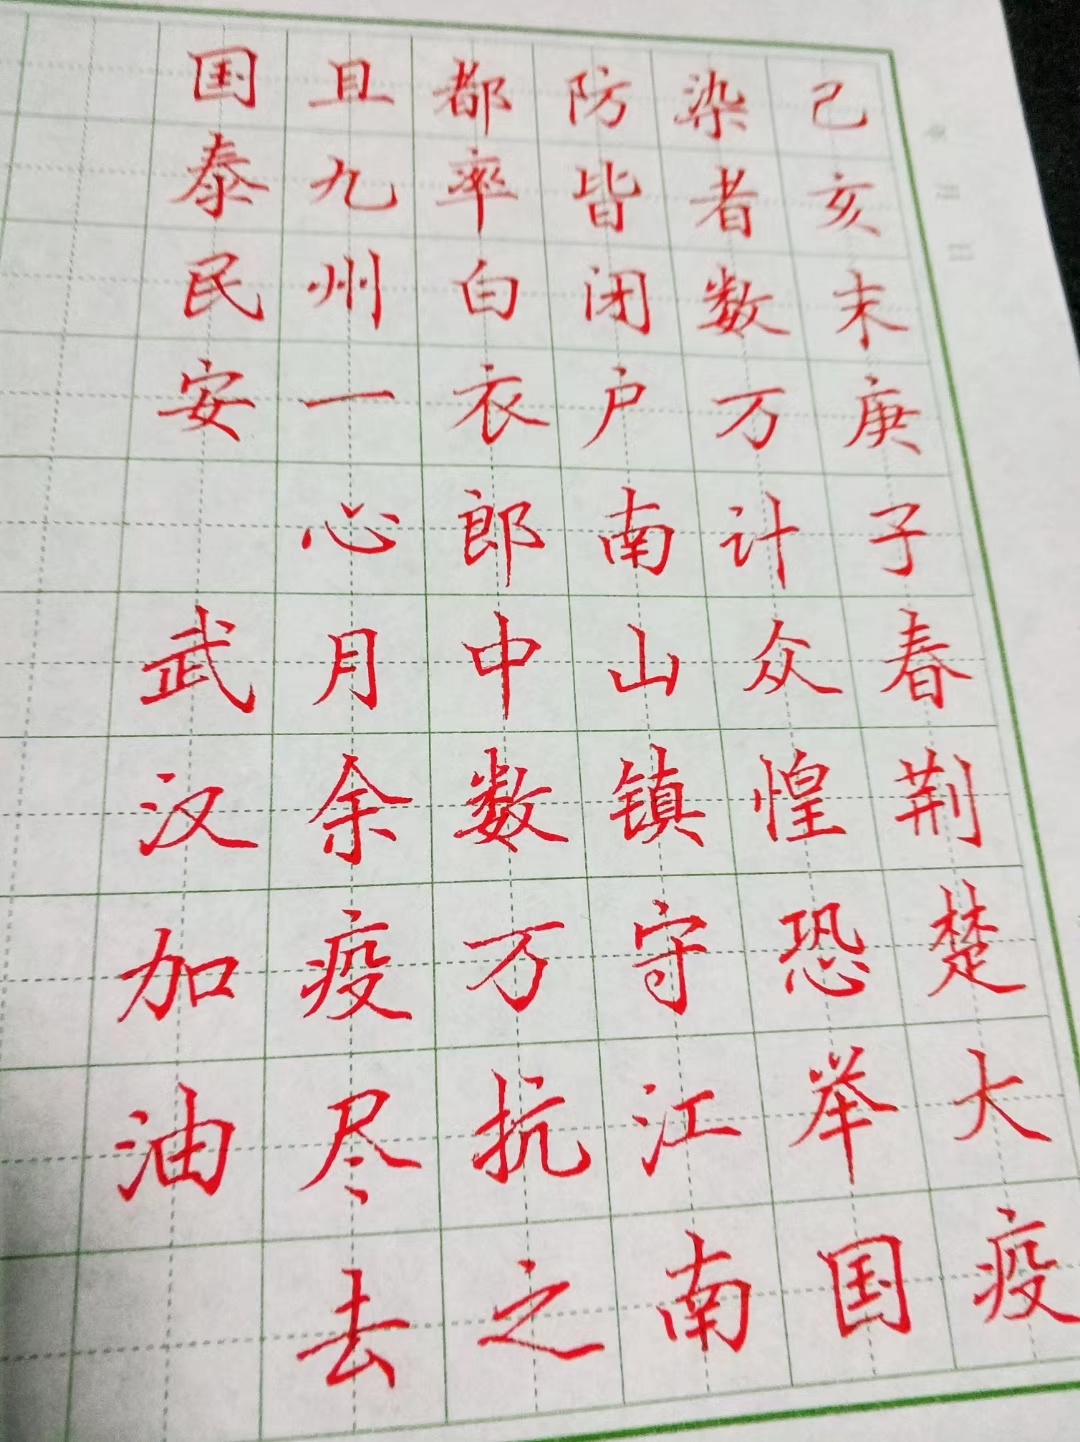 己亥末庚子春荆楚大疫
染者数万计众惶恐举国
防皆闭户南山镇守江南
都率白衣郎中数万抗之
且九州一心月余疫尽去
国泰民安 武汉加油